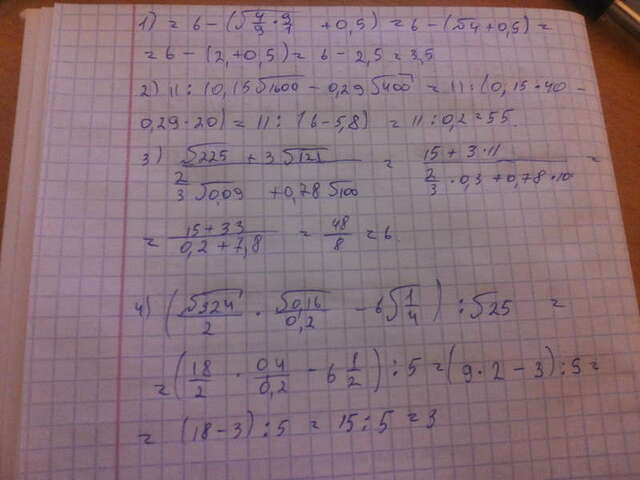 1) = 6 - (√(4/9) · 9/1 + 0,5) = 6 - (√4 + 0,5) =
= 6 - (2 + 0,5) = 6 - 2,5 = 3,5
2) 11 : (0,15√1600 - 0,29√400 = 11 : (0,15·40 -
0,29·20) = 11 : (6 - 5,8) = 11 : 0,2 = 55.
3) (√225 + 3√121) / (2/3 √0,09 + 0,78√100) = (15 + 3·11) / (2/3 · 0,3 + 0,78·10) =
= (15 + 33) / (0,2 + 7,8) = 48/8 = 6.
4) (√324/2 · √0,16/0,2 - 6√(1/4)) : √25 =
= (18/2 · 0,4/0,2 - 6 1/2) : 5 = (9·2 - 3) : 5 =
= (18 - 3) : 5 = 15 : 5 = 3